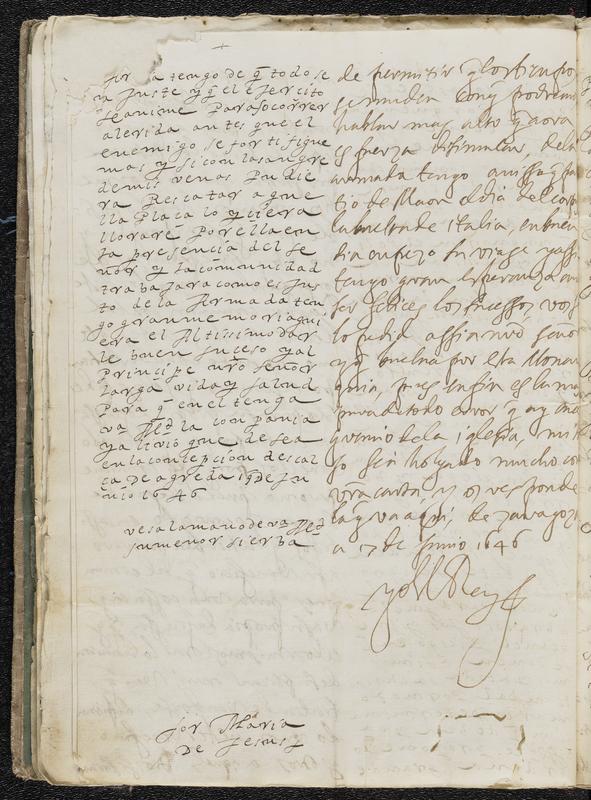 for a tengo de q̃ todo se
ya juste y q̃ el ejercito
se anime para socorrer
alerida antes que el
enemigo se fortifique
mas y si con la sangre
de mis venas pudie
ra Rescatar a que
lla Plaça lo yciera
llorare por ella en
la presencia del se
ñor y la comunidad
trabajara como es jus
to de la Jermada ten
go gran memoria qui
era el Altissimo dar
le buen suceso y al
principe nr̃o señor
larga vida y salud
para q̃ en el tenga
va Mgd la conpañia
y alivio que desea
en la concepcion descal
ça de agreda 19 de ju
nio 1646
vesa la mano de va Mgd
su menor sierba
sor Maria
de Jesus
de permitir q los tienpos
se muden conq podremos
hablar mas alto q aora
es fuerza disimular, de la
armada tengo aviso q par
tio de Maon el dia del corp
la buelta de italia, en buen
dia enpezo su viage y assi
tengo gran esperanza an de
ser felices los sucessos, vos
lo pedid assi a nr̃o señor
y q buelva por esta Monar
quia, pues en fin es la mas
privada de todo error y ay en
gremio de la iglesia, mi hi
jo se a holgado mucho con
vr̃a carta, y os responde
la q va aqui, de zaragoza
a 7 de junio 1646
yo el Rey